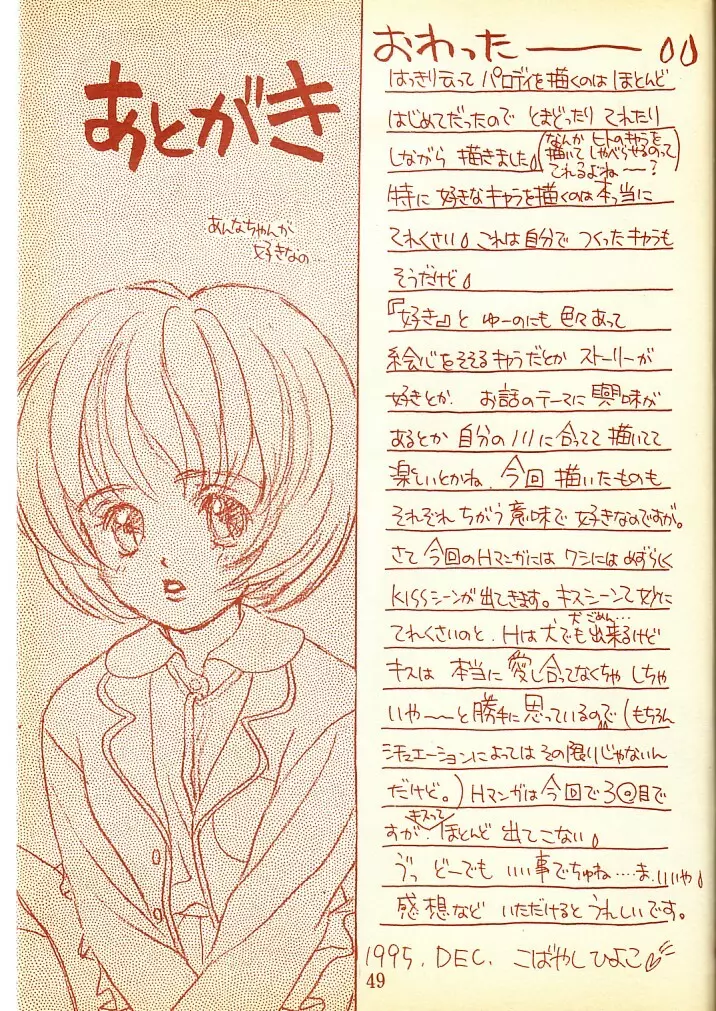 あとがき
あんなちゃんが
好きなの…
おわったーーー
はっきり云って パロディを描くのは ほとんど
はじめてだったので とまどったり てれたり
しながら 描きました
(なんか ヒトのキャラを
描いて しゃべらせるのって
てれるよね〜〜?)
特に 好きなキャラを描くのは本っ当に
てれくさい これは自分で つくったキャラも
そうだけど
『好き』と ゆーのにも 色々あって
絵心をそそるキャラだとか ストーリーが
好きとか、 お話のテーマに 興味が
あるとか 自分のノリに合ってて 描いてて
楽しいとかね、今回 描いたものも
それぞれ ちがう意味で 好きなのですが。
さて 今回のHマンガには ワシには めずらしく
KISSシーンが出てきます。キスシーンて妙に
犬ごめん…
てれくさいのと、Hは犬でも出来るけど
キスは 本当に 愛し合ってなくちゃ しちゃ
いや〜〜と勝手に思っているので(もちろん
シチュエーションによっては その限りじゃないん
だけど。) Hマンガは今回で3回目で
キスって
すが、ほとんど 出てこない
う゛っ どーでも いい事でちゅね……ま、いいや
感想など いただけると うれしいです。
1995. DEC. こばやしひよこ
49